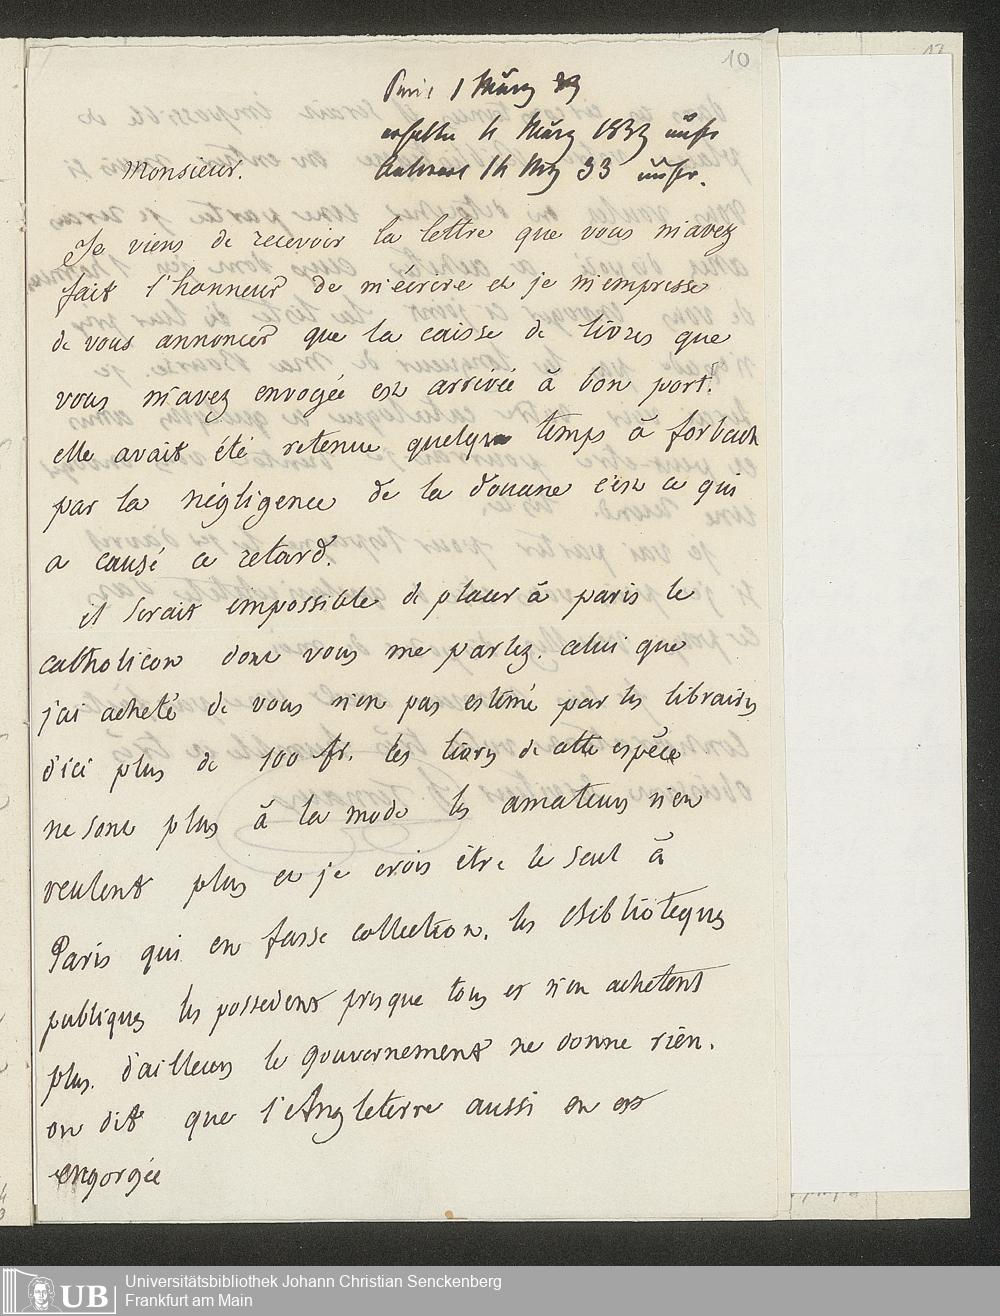 10
Paris 1 März 33
erhalten 4 März 1833
Antwort 14 Mrz 33
Monsieur.
Je viens de recevoir la lettre que vous m'avez
fait l'honneur de m'écrire et je m'empresse
de vous annoncer que la caisse de livres que
vous m'avez envoyée est arrivée à bon port.
elle avait été retenue quelque temps à forbach
par la négligence de la douane c'est ce qui
a causé ce retard.
il serait impossible de placer à paris le
catholicon dont vous me parlez. celui que
j'ai acheté de vous n'en pas estimé par les libraires
d'ici plus de 100 fr. les livres de cette espèce
ne sont plus à la mode les amateurs n'en
veulent plus et je crois être le seul à
Paris qui en fasse collection. les Bibliotèques
publiques les possedent presque tous et n'en achetent
plus. d'ailleurs le gouvernement ne donne rien.
on dit que l'Angleterre aussi en est
engorgée
UB
Universitätsbibliothek Johann Christian Senckenberg
Frankfurt am Main